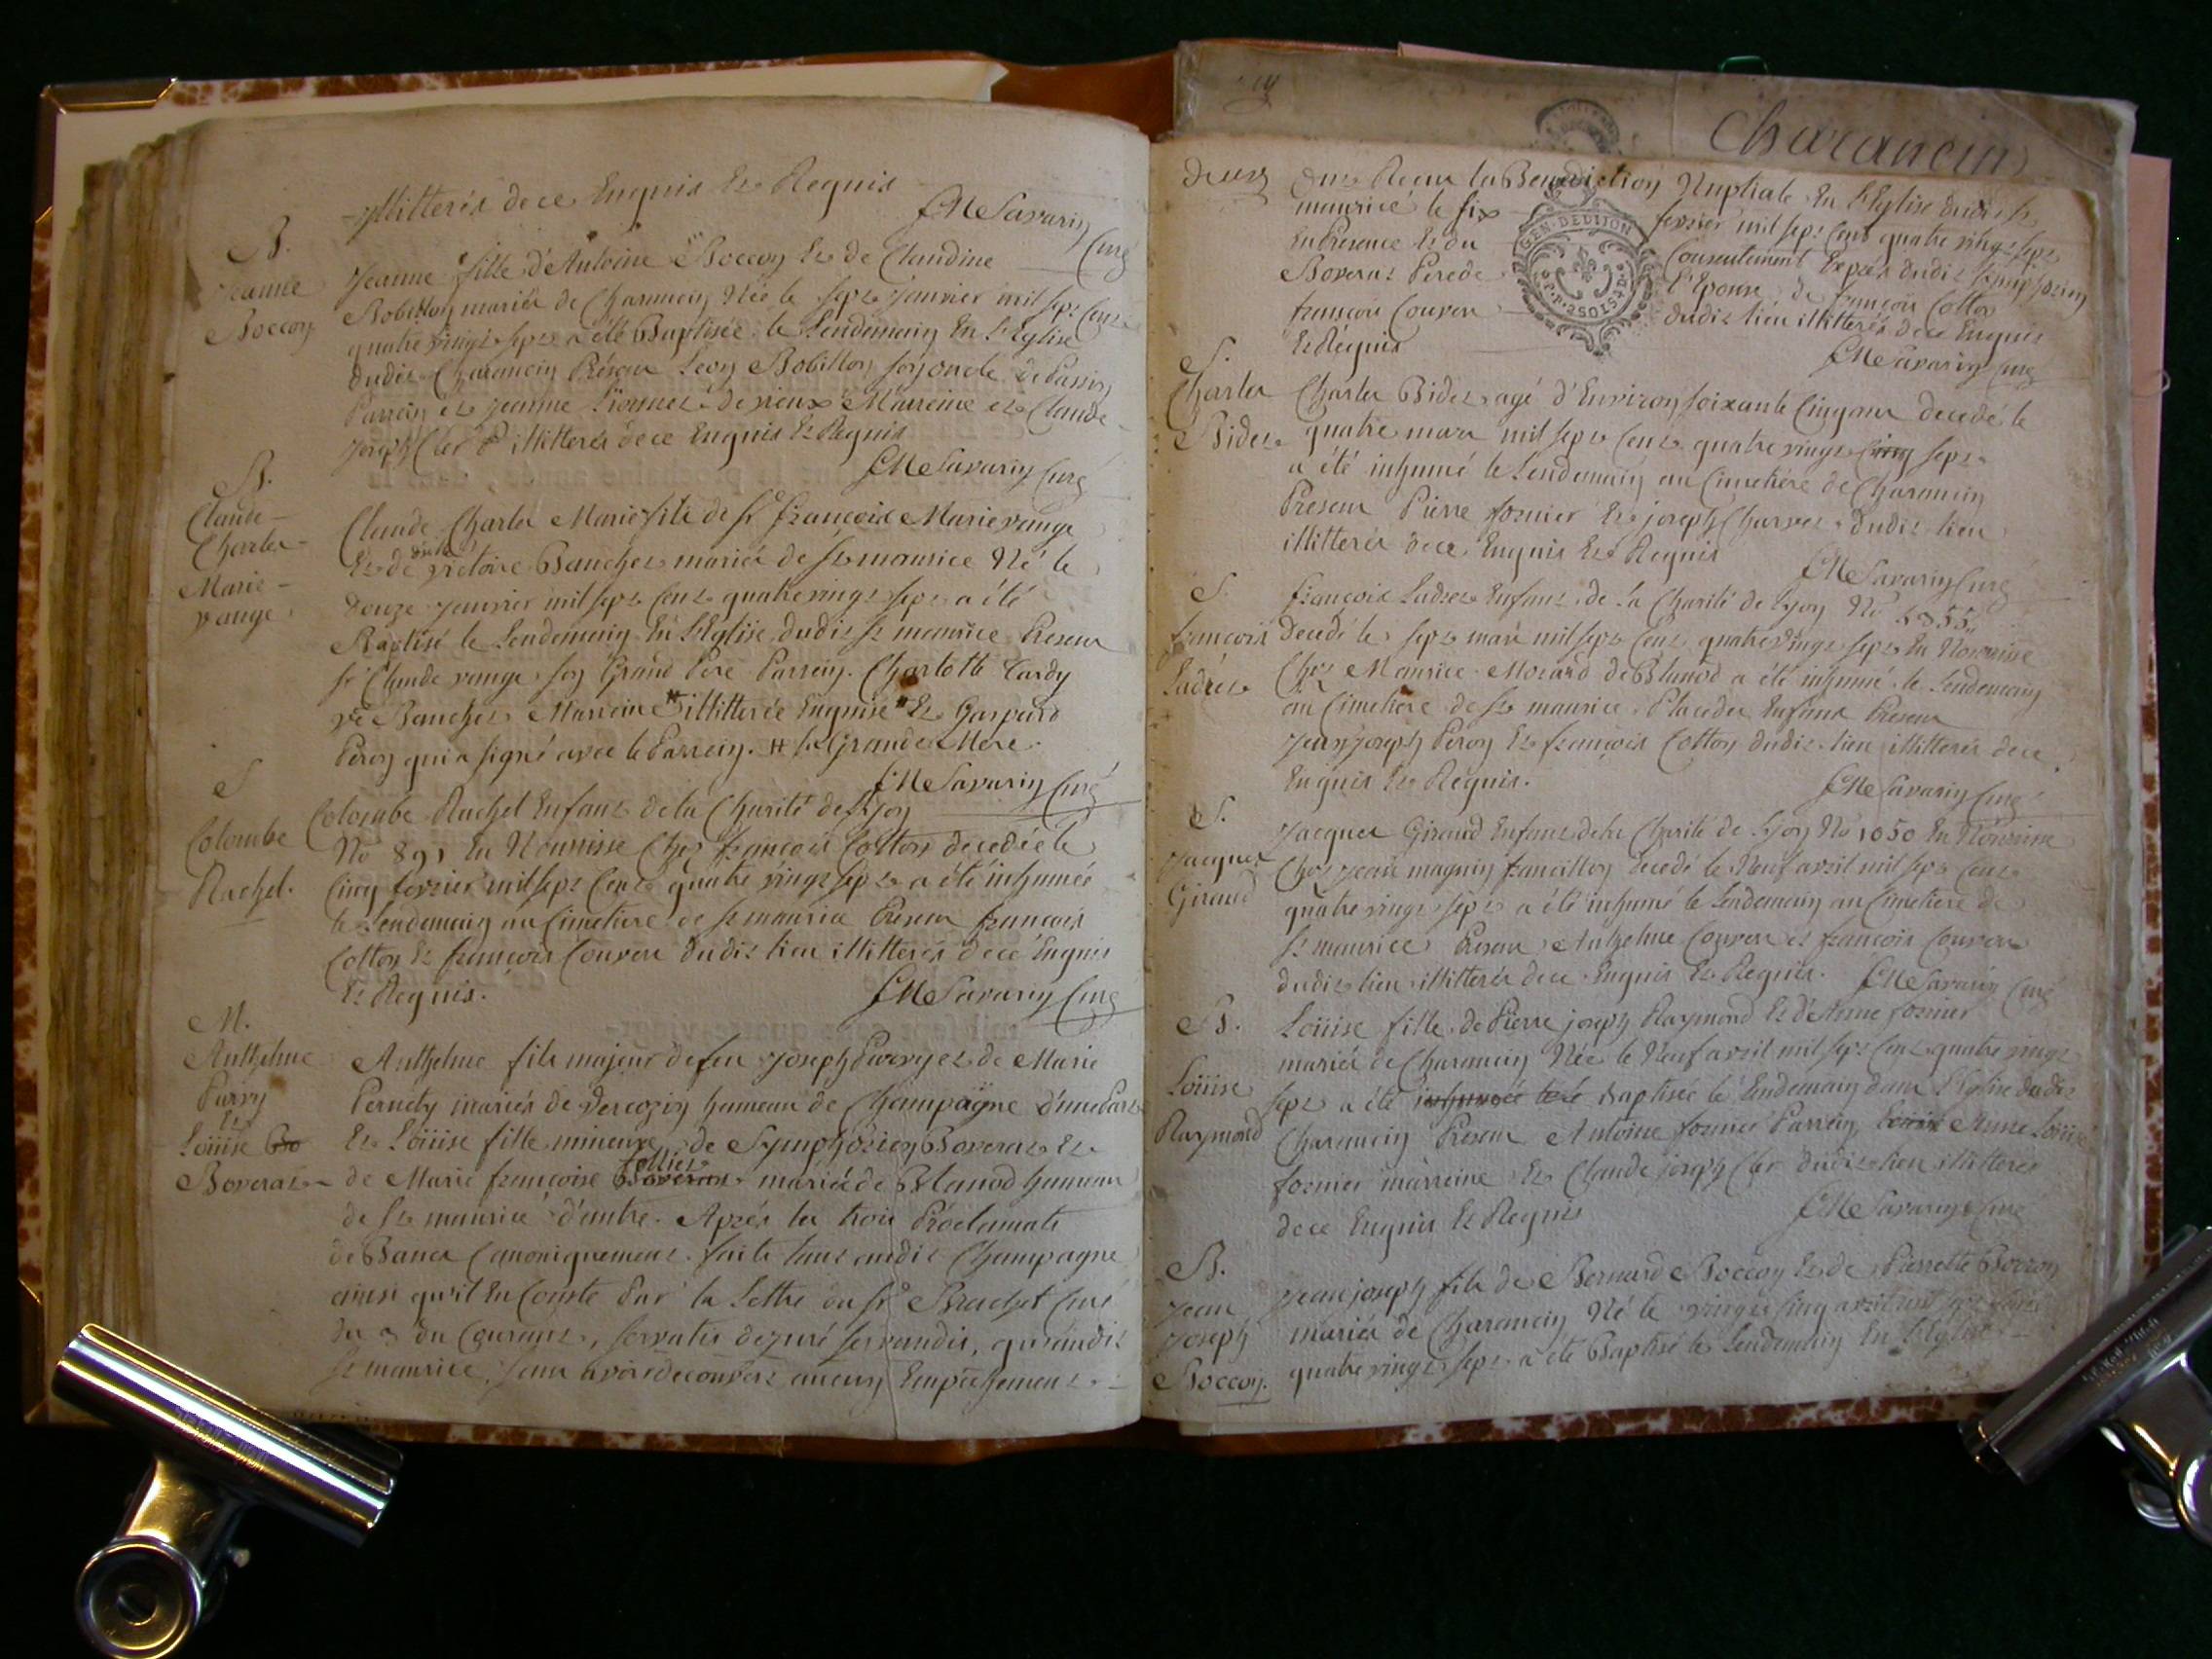 illitterés de ce Enquis Et Requis
CM Savarin Curé
B.
Jeanne
Boccon
Jeanne fille d'Antoine Boccon Et de Claudine
Bobillon mariés de Charancin Née le sept janvier mil sept Cent
quatre vingt sept a été Baptisée le Lendemain En L'Eglise
dudit Charancin Présens Leon Bobillon son oncle de Passin
Parrein et Jeanne de vieux Marreine et Claude
Joseph Cler illitterés de ce Enquis Et Requis
CM Savarin Curé
B.
Claude
Charles
Marie
vange
Claude Charles Marie fils de Sr francois Marie vange
Et de dlle victoire Banchet mariés de St maurice Né le
Douze Janvier mil sept Cent quatre vingt sept a été
Baptisé le Lendemain En L'Eglise dudit St maurice Presens
Sr Claude vange son Grand Pere Parrein. Charlotte Tardy
vve Banchet Marreine # illitterée Enquise Et Gaspard
Peron qui a signé avec le Parrein. # la Grande Mere.
CM Savarin Curé
S
Colombe
Rachel.
Colombe Rachel Enfant de la Charité de Lyon
No 891 En Nourrisse Chez francois Cotton decedée le
Cinq fevrier mil sept Cent quatre vingt sept a été inhumée
le Lendemain au Cimetiere de St maurice Presens francois
Cotton Et francois Couron dudit lieu illitterés de ce Enquis
Et Requis.
CM Savarin Curé
M.
Anthelme
Purvy
Et
Loüise Bo
Boverat
Anthelme fils majeur de feu Joseph Purvy et de Marie
Pernety mariés de vercozin hameau de Champagne d'une Part
Et Loüise fille mineure de Symphorien Boverat Et
Tollier
de Marie francoise Boverat mariés de Blanod hameau
de St maurice d'autre. Après les trois Proclamats
de Bancs Canoniquement faits tant audit Champagne
ainsi qu'il En Conste Par la Lettre du Sr Brachet Curé
du 3 du Courant, servatis de jure servandis, qu'audit
St maurice, sans avoir decouvert aucun Empechement
Charancin
GEN. DE DIJON
deux
Ont Reçu la Benediction Nuptiale En L'Eglise dudit St
maurice le six fevrier mil sept Cent quatre vingt sept
En Presence Et du Consentement Exprès dudit Symphorien
Boverat Pere de l'Epouse, de francois Cotton
francois Couron dudit lieu illitterés de ce Enquis
Et Requis
CM Savarin Curé
S.
Charles
Bidet
Charles Bidet agé d'Environ soixante Cinq ans decedé le
quatre mars mil sept Cent quatre vingt cinq sept
a été inhumé le Lendemain au Cimetiére de Charancin
Presens Pierre fornier Et joseph Charvet dudit lieu
illitterés de ce Enquis Et Requis
CM Savarin Curé
S.
francois
Ladret
francois Ladret Enfant de la Charité de Lyon No 5355
Decedé le sept mars mil sept Cent quatre vingt sept En Nourrisse
Chez Maurice Morard de Blanod a été inhumé le Lendemain
au Cimetiére de St maurice. Place des Enfans Presens
Jean Joseph Peron Et francois Cotton dudit lieu illitterés de ce
Enquis Et Requis.
CM Savarin Curé
S.
Jacques
Giraud
Jacques Giraud Enfant de la Charité de Lyon No 1050 En Nourrisse
Chez Jean magnin francillon decedé le Neuf avril mil sept Cent
quatre vingt sept a été inhumé le Lendemain au Cimetiére de
St maurice Presens Anthelme Couron et francois Couron
dudit lieu illitterés de ce Enquis Et Requis.
CM Savarin Curé
B.
Loüise
Raymond
Loüise fille de Pierre joseph Raymond Et d'Anne fornier
mariés de Charancin Née le Neuf avril mil sept Cent quatre vingt
sept a été inhumée le Baptisée le Lendemain dans L'Eglise dudit
Charancin Presens Antoine fornier Parrein, Anne Loüise
fornier marreine Et Claude joseph Cler dudit lieu illitterés
de ce Enquis Et Requis
CM Savarin Curé
B.
Jean
Joseph
Boccon.
Jean joseph fils de Bernard Boccon Et de Pierrette Borron
mariés de Charancin Né le vingt Cinq avril mil sept Cent
quatre vingt sept a été Baptisé le Lendemain En L'Eglise